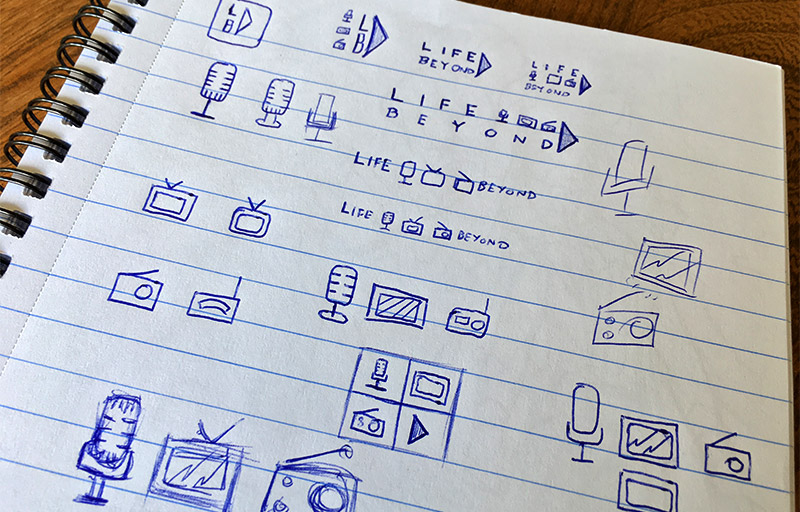 L
B
L
B
LIFE
BEYOND
LIFE
BEYOND
LIFE
BEYOND
LIFE BEYOND
LIFE BEYOND